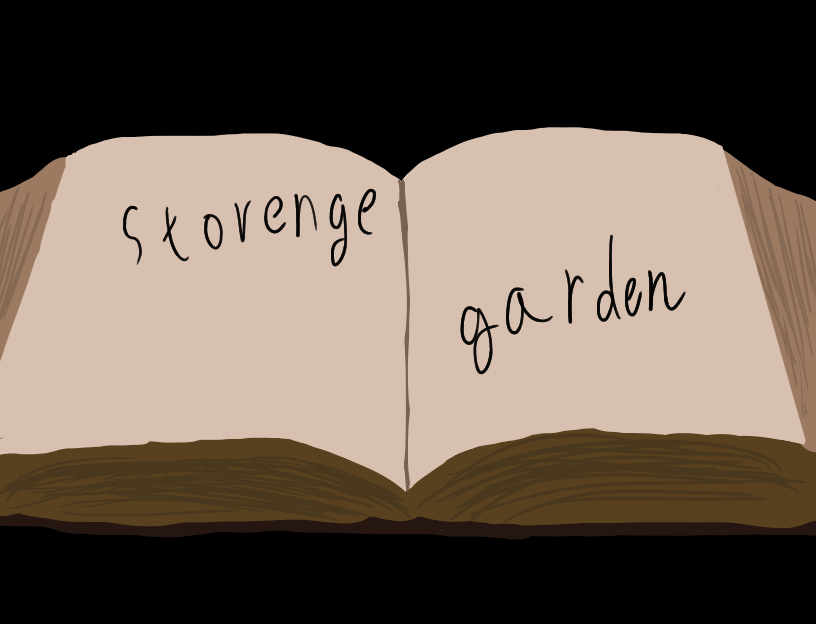 Stovenge
garden